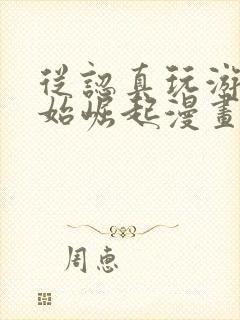 從認真玩游
始崛起漫畫
周惠